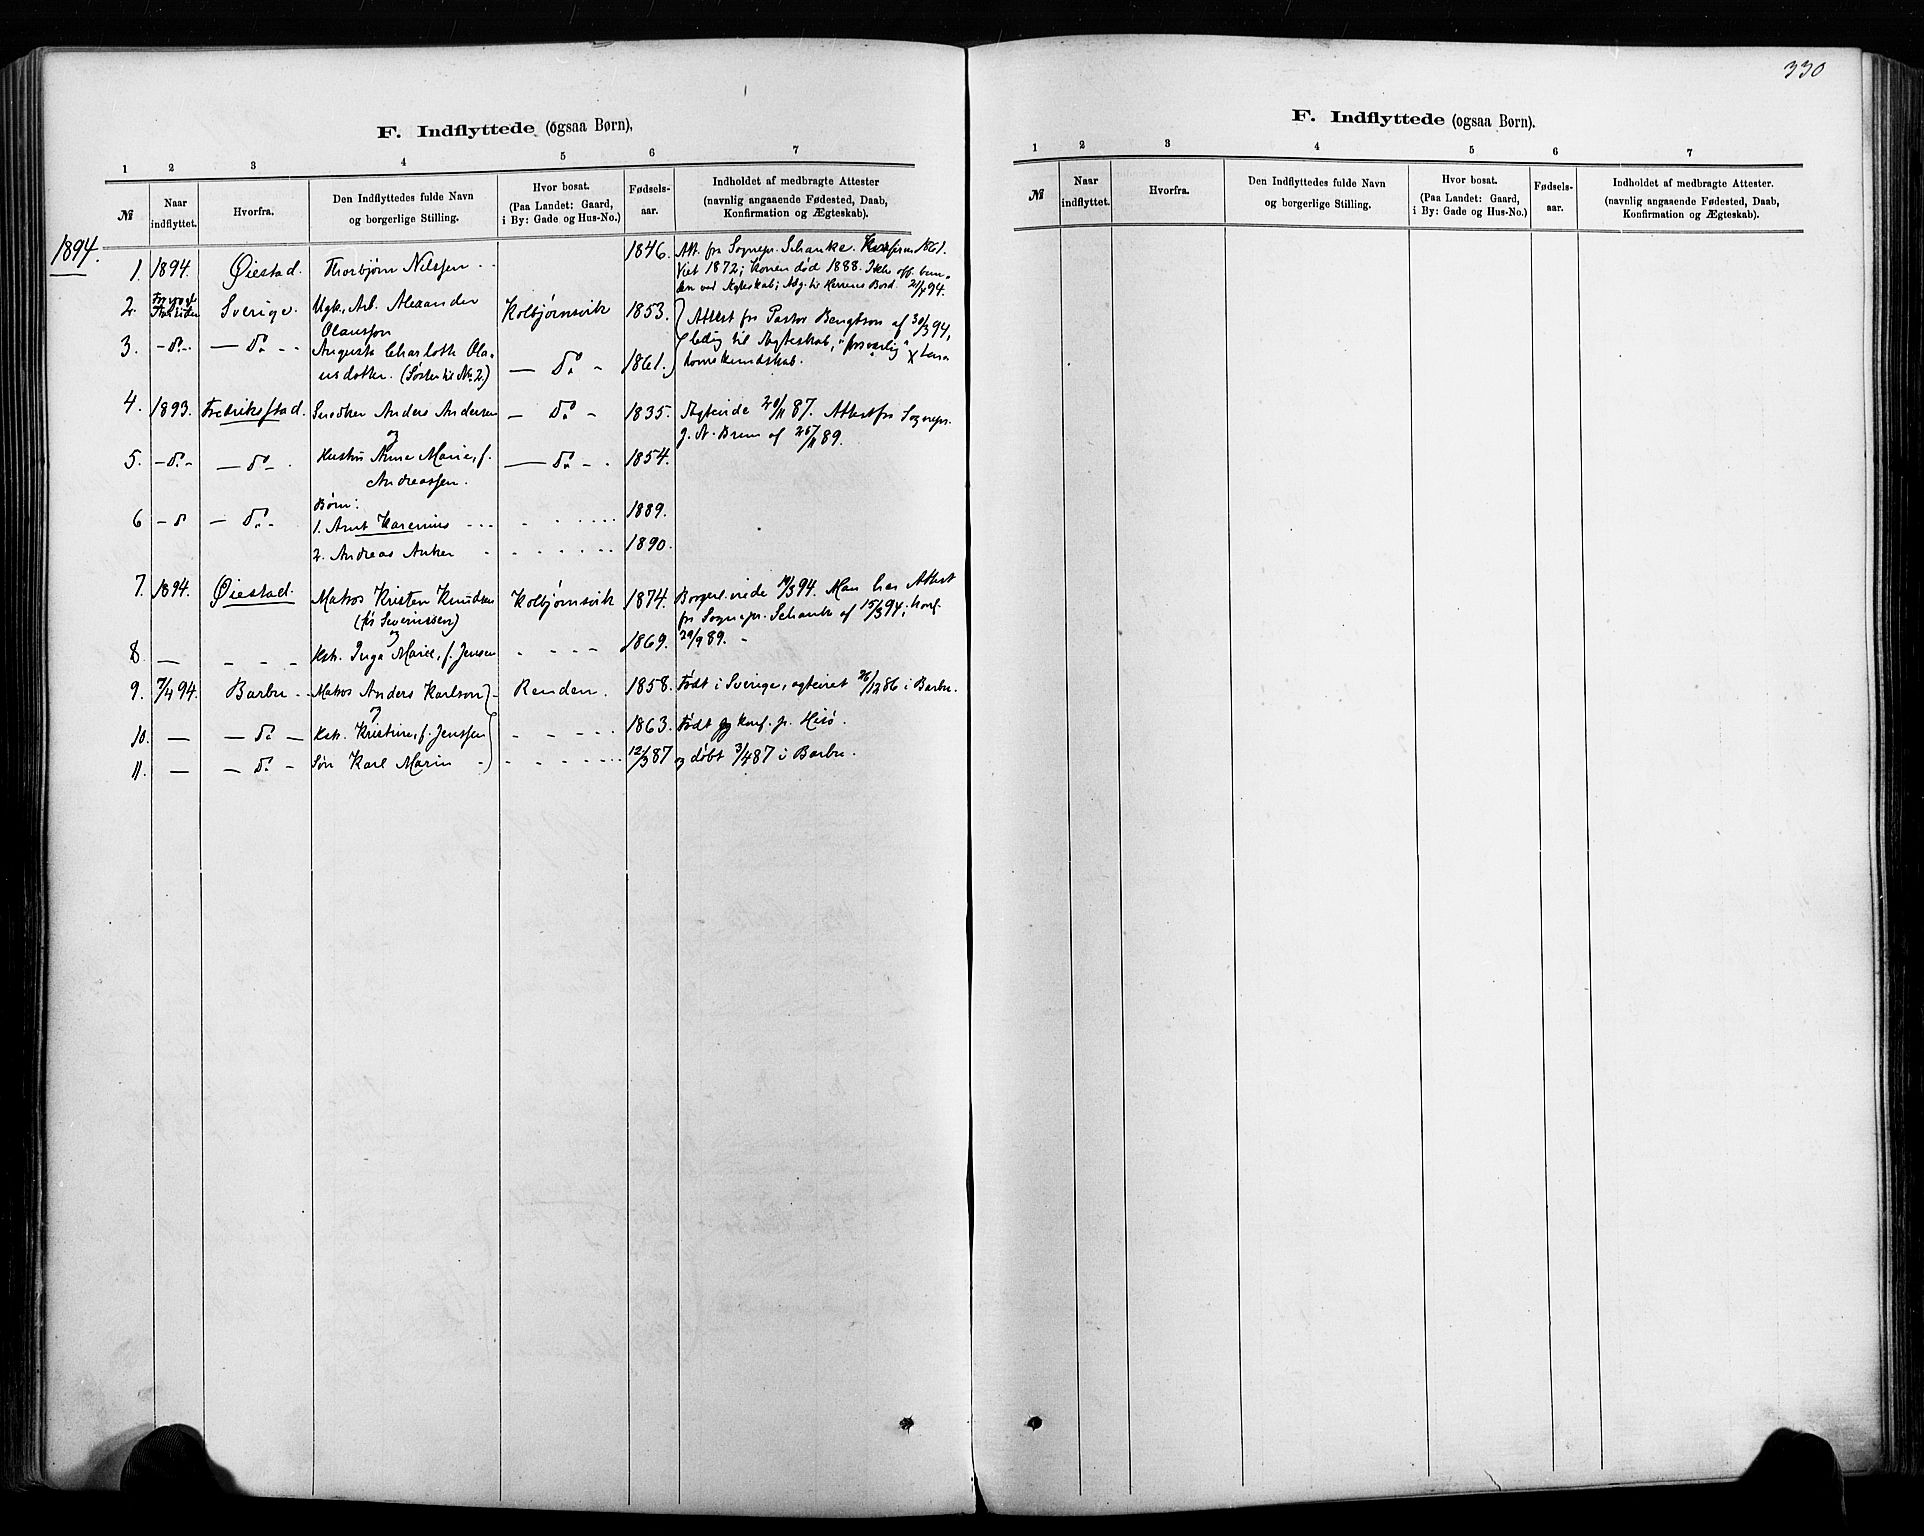 330
F. Indflyttede (ogsaa Børn),
1 2 3 4 5 6 7
№ Naar indflyttet. Hvorfra. Den Indflyttedes fulde Navn og borgerlige Stilling. Hvor bosat. (Paa Landet: Gaard, i By: Gade og Hus-No.) Fødsels-aar. Indholdet af medbragte Attester (navnlig angaaende Fødested, Daab, Konfirmation og Ægteskab).
1894.
1. 1894. Øiestad. Thorbjørn Nilssen 1846. Att. fra Sognepr. Schanke. Konfirm 1861.
Viet 1872; Konen død 1888. Ikke off. bun-
den ved Ægteskab; Adg. til Herrens Bord. 2/4 94.
2. Sverige. Ugk. Arb. Alexander Kolbjørnsvik 1853. Attest fra Pastor Bengtson af 30/3 94,
Olausson ledig til Ægteskab, "forsvarlig"
3. - do - - do - Augusta Charlotte Ola- - do - 1861. domskundskab.
usdotter. (Søster til No. 2.)
4. 1893. Fredriksstad. Snedker Anders Andersen - do - 1835. Ægteviede 20/11 87. Attest fra Sognepr.
og J. N. Bruun af 25/11 89.
5. - do - - do - Hustru Anna Marie, f. - do - 1854.
Andreassen.
Børn:
6 - do - do - 1. Arnt Karenius 1889.
2. Andreas Anker 1890.
7. 1894. Øiestad. Matros Kristen Knudsen Kolbjørnsvik 1874. Borgerl. viede 19/3 94. Man har Attest
(fra Severinssen) fra Sognepr. Schanke af 15/3 94; konf.
og 29/9 89.
8 — Hstr. Inga Marie, f. Jensen 1869.
9. 7/4 94. Barbu Matros Anders Karlson Renden. 1858. Født i Sverige, ægteviet 26/12 86 i Barbu.
og
10. — - do - Hstr. Kristine, f. Jenssen 1863. Født og konf. p. Hisø.
11. — - do - Søn Karl Marin 12/3 87 og døbt 3/4 87 i Barbu.
F. Indflyttede (ogsaa Børn).
1 2 3 4 5 6 7
№ Naar indflyttet. Hvorfra. Den Indflyttedes fulde Navn og borgerlige Stilling. Hvor bosat. (Paa Landet: Gaard, i By: Gade og Hus-No.) Fødsels-aar. Indholdet af medbragte Attester. (navnlig angaaende Fødested, Daab, Konfirmation og Ægteskab).